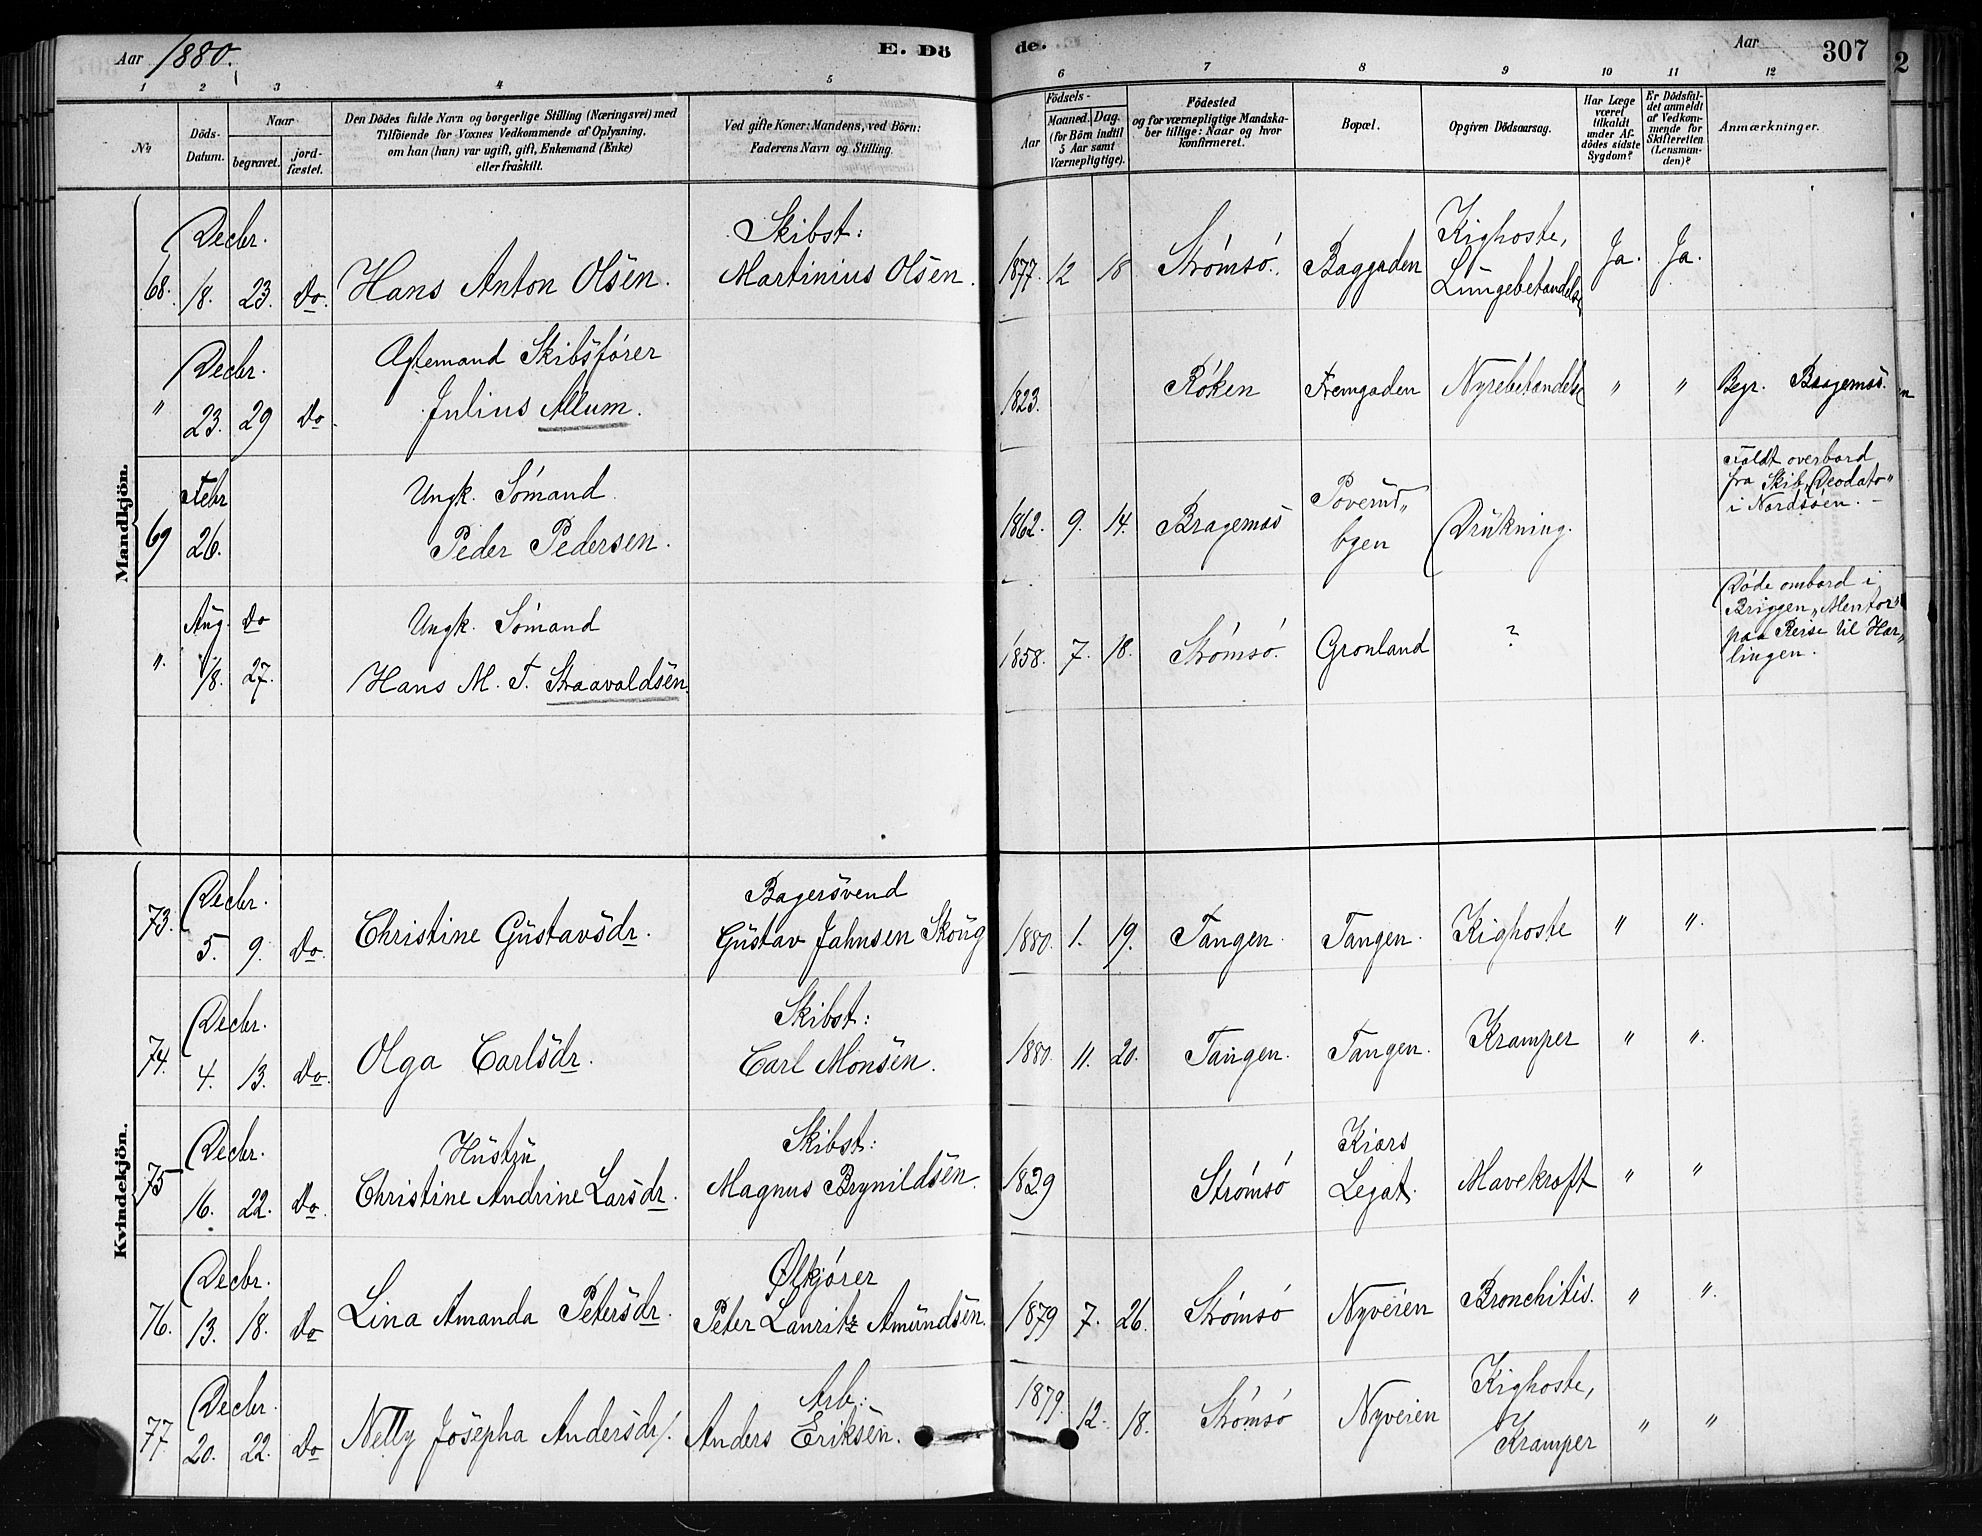 Aar 1880.
E. Dö
de.
Aar
307
1 2 3 4 5 6 7 8 9 10 11 12
No
Döds-
Datum.
Naar
begravet.
jord-
fæstet.
Den Dödes fulde Navn og borgerlige Stilling (Næringsvei) med
Tilföiende for Voxnes Vedkommende af Oplysning,
om han (hun) var ugift, gift, Enkemand (Enke)
eller fraskilt.
Ved gifte Koner: Mandens, ved Börn:
Faderens Navn og Stilling.
Födsels-
Aar
Maaned. Dag.
(for Börn indtil
5 Aar samt
Værnepligtige).
Födested
og for værnepligtige Mandska-
ber tillige: Naar og hvor
konfirmeret.
Bopæl.
Opgiven Dödsaarsag.
Har Læge
været
tilkaldt
under Af-
dödes sidste
Sygdom?
Er Dödsfal-
det anmeldt
af Vedkom-
mende for
Skifteretten
(Lensman-
den)?
Anmærkninger.
Mandkjön.
Decbr. Skibst: Kighoste,
68. 18. 23. Do. Hans Anton Olsen. Martinius Olsen. 1877. 12 18 Strömsö. Baggaden Lungebetændelse Ja. Ja.
Decbr. Ægtemand Skibsförer
" 23. 29 Do. Julius Allum. 1823. Röken Fremgaden Nyrebetændelse " " Begr. Bragernæs.
Febr Ungk. Sömand Poverud„ Faldt overbord
fra Skib „Deodato"
i Nordsöen. –
69 26. Peder Pedersen. 1862. 9. 14. Bragernæs bgen Drukning.
Aug. Do Ungk. Sömand Döde ombord i
Briggen „Mentor"
paa Reise til Har„
lingen.
" 18. 27. Hans M. T. Straavaldsen. 1858. 7. 18. Strömsö. Grönland ?
Kvindekjön.
Decbr. Bagersvend
73. 5. 9. Do. Christine Gustavsdr. Gustav Jahnsen Skoug 1880. 1. 19. Tangen. Tangen. Kighoste " "
Decbr. Skibst:
74. 4. 13. Do. Olga Carlsdr. Carl Monsen. 1880. 11. 20. Tangen. Tangen. Kramper " "
Decbr. Hustru Skibst: Kiærs
75 16. 22. Do. Christine Andrine Larsdr. Magnus Brynildsen. 1829 Strömsö Legat. Mavekræft " "
Decbr. Ølkjörer
76. 13. 18. Do Lina Amanda Petersdr. Peter Lauritz Amundsen. 1879 7. 26. Strömsö Nyveien Bronchitis. " "
Decbr. Arb: Kighoste,
77 20. 22. Do Nelly Josepha Andersdr. Anders Eriksen. 1879. 12. 18. Strömsö Nyveien Kramper " "